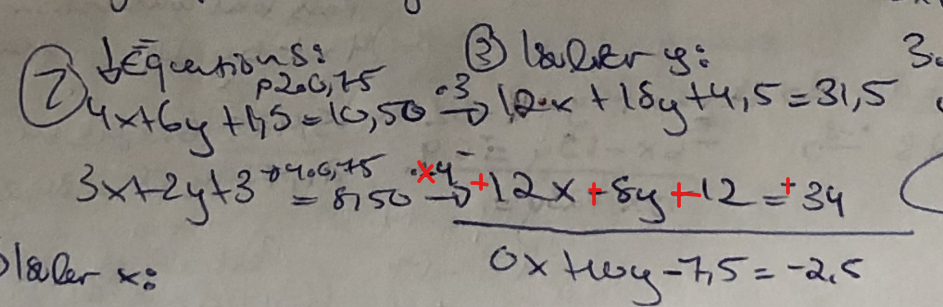 ② ↓ Equations: ③ Isoler y: 3.
→ 2·0,75
4x+6y+1,5=10,50 ·3→ 12·x+18y+4,5=31,5
→ 4·0,75
3x+2y+3=8,50 ·×4→ +12x+8y+12=+34
0x+10y-7,5=-2,5
Isoler x: